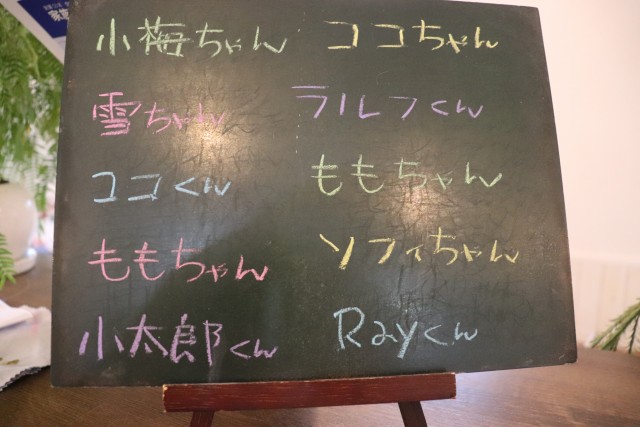 小梅ちゃん ココちゃん
雪ちゃん ラルフくん
ココくん ももちゃん
ももちゃん ソフィちゃん
小太郎くん Rayくん